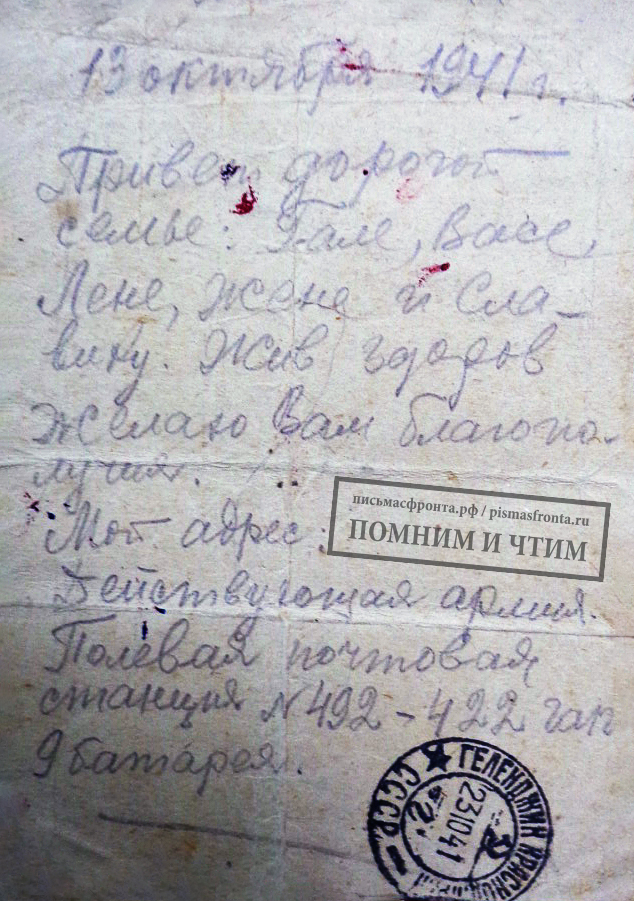 13 октября 1941 г.
Привет дорогой
семье: Гале, Васе,
Лене, Жене и Сла-
вику. Жив здоров
желаю Вам благопо-
лучия.
письмасфронта.рф / pismasfronta.ru
ПОМНИМ И ЧТИМ
Мой адрес:
Действующая армия.
Полевая почтовая
станция №492-422 гап
9 батарея.
ГЕЛЕНДЖИК КРАСНОД.
СССР
23.10.41